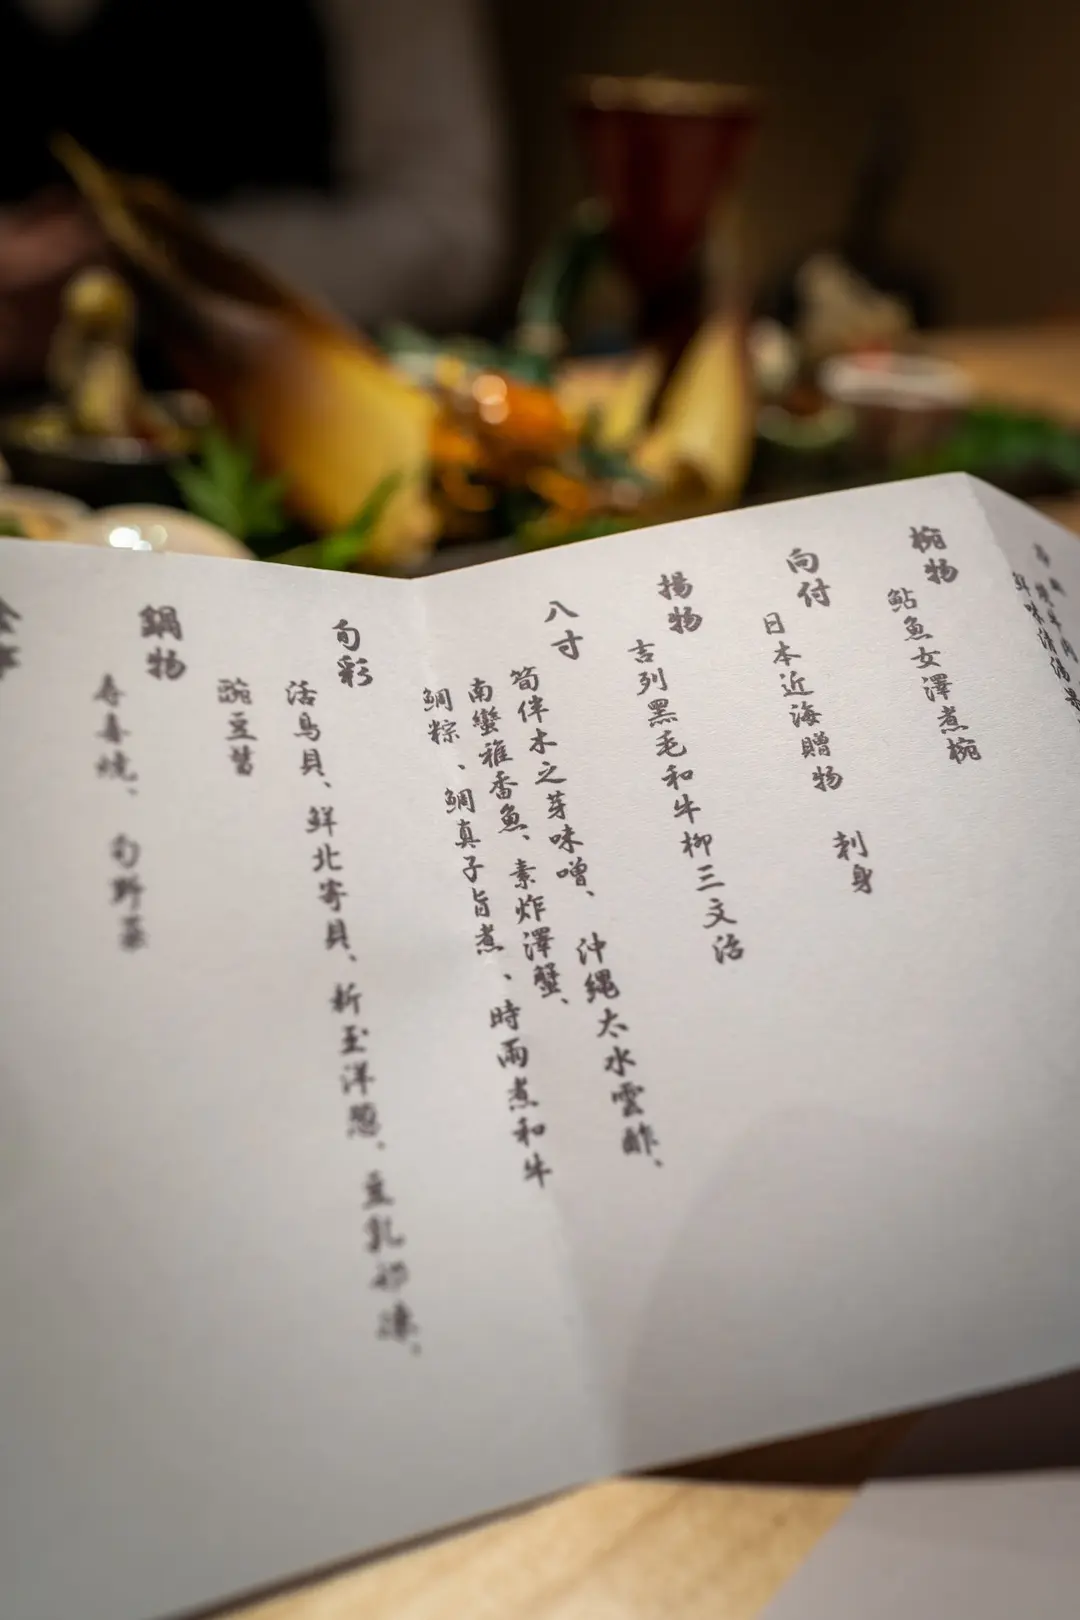 鮮味清湯
椀物
鮎魚女澤煮椀
向付
日本近海贈物 刺身
揚物
吉列黑毛和牛柳三文治
八寸
筍伴木之芽味噌、沖縄太水雲酢、
南蠻稚香魚、素炸澤蟹、
鯛粽、鯛真子旨煮、時雨煮和牛
旬彩
活鳥貝、鮮北寄貝、新玉洋葱、豆乳奶凍、
豌豆醬
鍋物
壽喜燒、旬野菜
食事